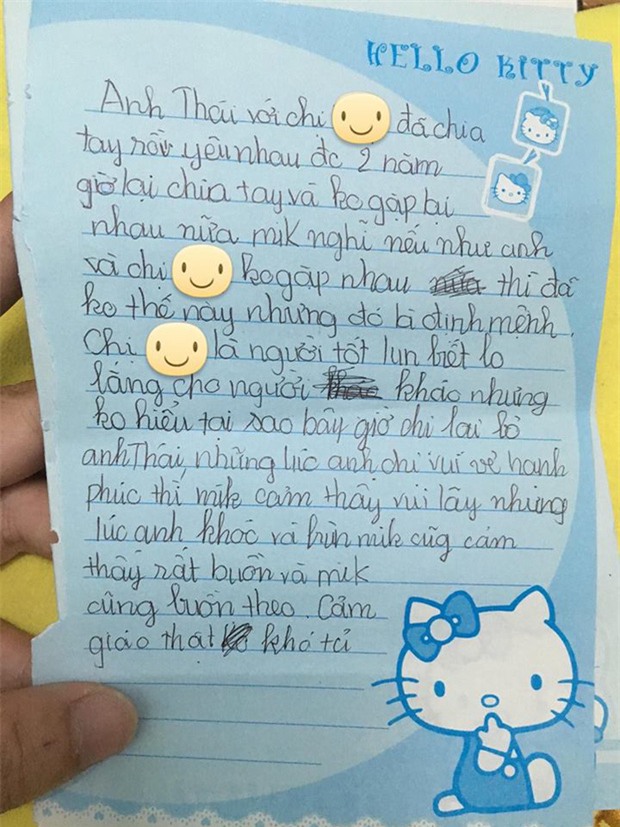 HELLO KITTY
Anh Thái với chị đã chia
tay rồi yêu nhau đc 2 năm
giờ lại chia tay và ko gặp lại
nhau nữa mik nghĩ nếu như anh
và chị ko gặp nhau thì đã
ko thế này nhưng đó là định mệnh.
Chị là người tốt lun biết lo
lắng cho người khác nhưng
ko hiểu tại sao bây giờ chị lại bỏ
anh Thái, những lúc anh chị vui vẻ hạnh
phúc thì mik cảm thấy vui lây nhưng
lúc anh khóc và bùn mik cũg cảm
thấy rất buồn và mik
cũng buồn theo. Cảm
giác thật khó tả